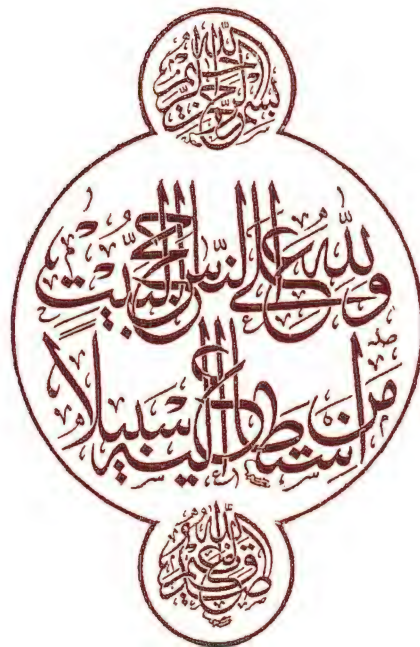 بسم الله الرحمن الرحيم
ولله على الناس حج البيت
من استطاع إليه سبيلا
صدق الله